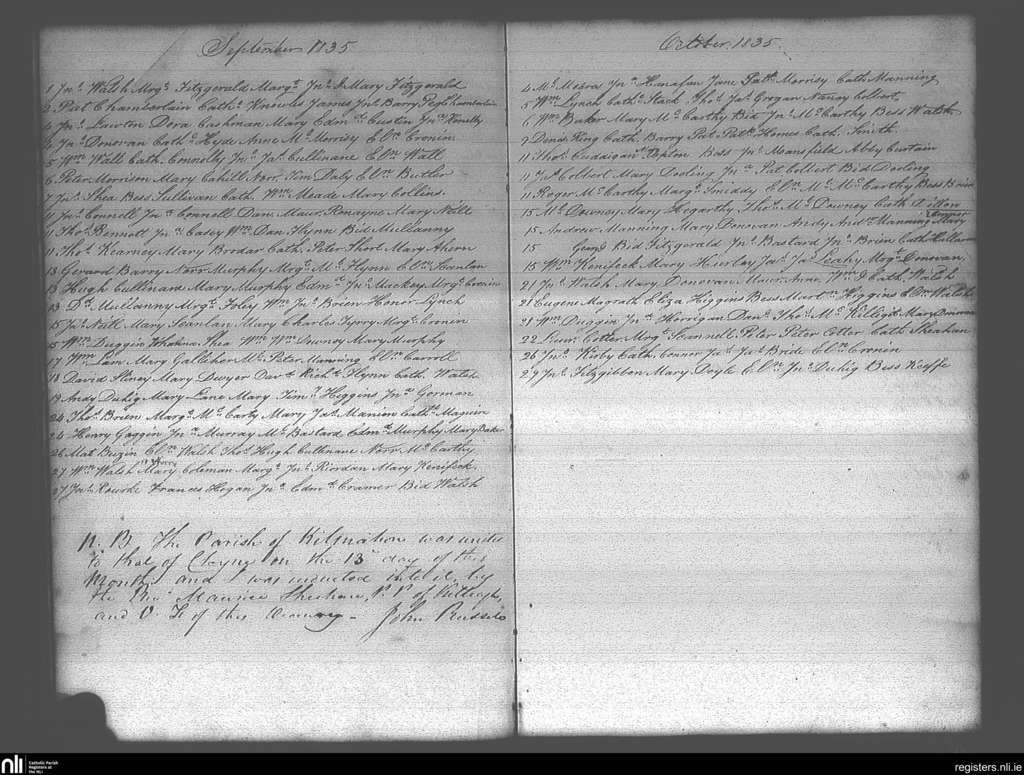 September 1835
1 Jno. Walsh Margt. Fitzgerald Margt. Jno. & Mary Fitzgerald
2 Pat Chamberlain Cathe. Knowles James Jno. Barry Peg Chamberlain
4 Jno. Lawton Dora Cashman Mary Edmd. Custin Jno. Kenelly
4 Jno. Donovan Cathe. Hyde Anne Ml. Morrisy Elln. Cronin
5 Wm. Wall Cath. Connolly Jno. Jas. Cullinane Elln. Wall
6 Peter Morrison Mary Cahill Norr. Tim Daly Elln. Butler
7 Jno. Shea Bess Sullivan Cath. Wm. Meade Mary Collins
11 Jno. Connell Jna. Connell Dan. Maur. Ronayne Mary Neill
11 Thos. Bennett Jna. Casey Wm. Dan Flynn Bid
11 Thos. Kearney Mary Brodar Cath. Peter Short Mary Ahern
13 Gerard Barry Norr Murphy Mrgt. Ml. Flynn Elln. Scanlan
13 Hugh Cullinane Mary Murphy Edmd. Jno. Mackey Mrgt. Cronin
13 Mrgt. Foley Wm. Jno. Brien Honor Lynch
15 Jno. Neill Mary Scanlan Mary Charles Mrgt. Cronin
15 Wm. Duggin Shea Wm. Wm. Downey Mary Murphy
17 Wm. Mary Galleher Ml. Peter Manning Elln. Carroll
18 David Mary Dwyer Davd. Richd. Flynn Cath. Walsh
19 Andy Duhig Mary Lane Mary Timy. Higgins Jna. Gorman
24 Thos. Brien Margt. McCarty Mary Jas. Manion Cathe. Manion
24 Henry Goggin Jna. Murray Ml. Bastard Edmd. Murphy Mary Baker
26 Mat Elln. Walsh Thos. Hugh Cullenane Norr. McCarthy
27 Wm. Walsh Mary Coleman Margt. Jno. Riordan Mary Kenifeck
27 Jno. Rourke Frances Hogan Jno. Edmd. Cramer Bid Walsh
N. B. The Parish of was
to that of Cloyne on the 13th day of this
Month and I was inducted into it by
the Revd. Maurice P. P. of Killeagh,
and V. F. of this Deanery – John Russell
October 1835
4 Ml. Meara Jna. Hanafan Jane Patk. Morrisy Cath Manning
5 Wm. Lynch Cathe. Stack Thos. Jas. Grogan Nancy Colbert
6 Wm. Baker Mary McCarthy Bid Jno. McCarthy Bess Walsh
9 Denis King Cath. Barry Pat Patk. Homes Cath. Smith
11 Thos. Cuddigan Upton Bess Jno. Mansfield Abby Curtain
11 Jno. Colbert Mary Dooling Jna. Pat Colbert Bid Dooling
11 Roger McCarthy Margt. Smiddy Elln. Ml. McCarthy Bess Brien
15 Ml. Downey Mary Hegarthy Thos. Ml. Downey Cath Aitkin
15 Andrew Manning Mary Donovan Andy Andw. Manning Mary
15 Geong Bid Fitzgerald Jno. Bastard Jno. Brien Cath
15 Wm. Kenifeck Mary Hurley Jas. Jas. Leahy Mrgt. Donovan
21 Jno. Walsh Mary Donovan Maur. Anne Wm. & Cath. Walsh
21 Eugene Magrath Eliza Higgins Bess Martn. Higgins Elln. Walsh
21 Wm. Duggin Jna. Horrigan Danl. Thos. Ml. Killegit Mary Donovan
22 Laur. Cotter Mrgt. Scannell Peter Peter Cotter Cath Sheahan
26 Jno. Kirby Cath. Connor Jno. Jno. Bride Elln. Cronin
29 Jno. Fitzgibbon Mary Doyle Elln. Jno. Duhig Bess Keyffe
nli Catholic Parish Registers at the NLI
registers.nli.ie